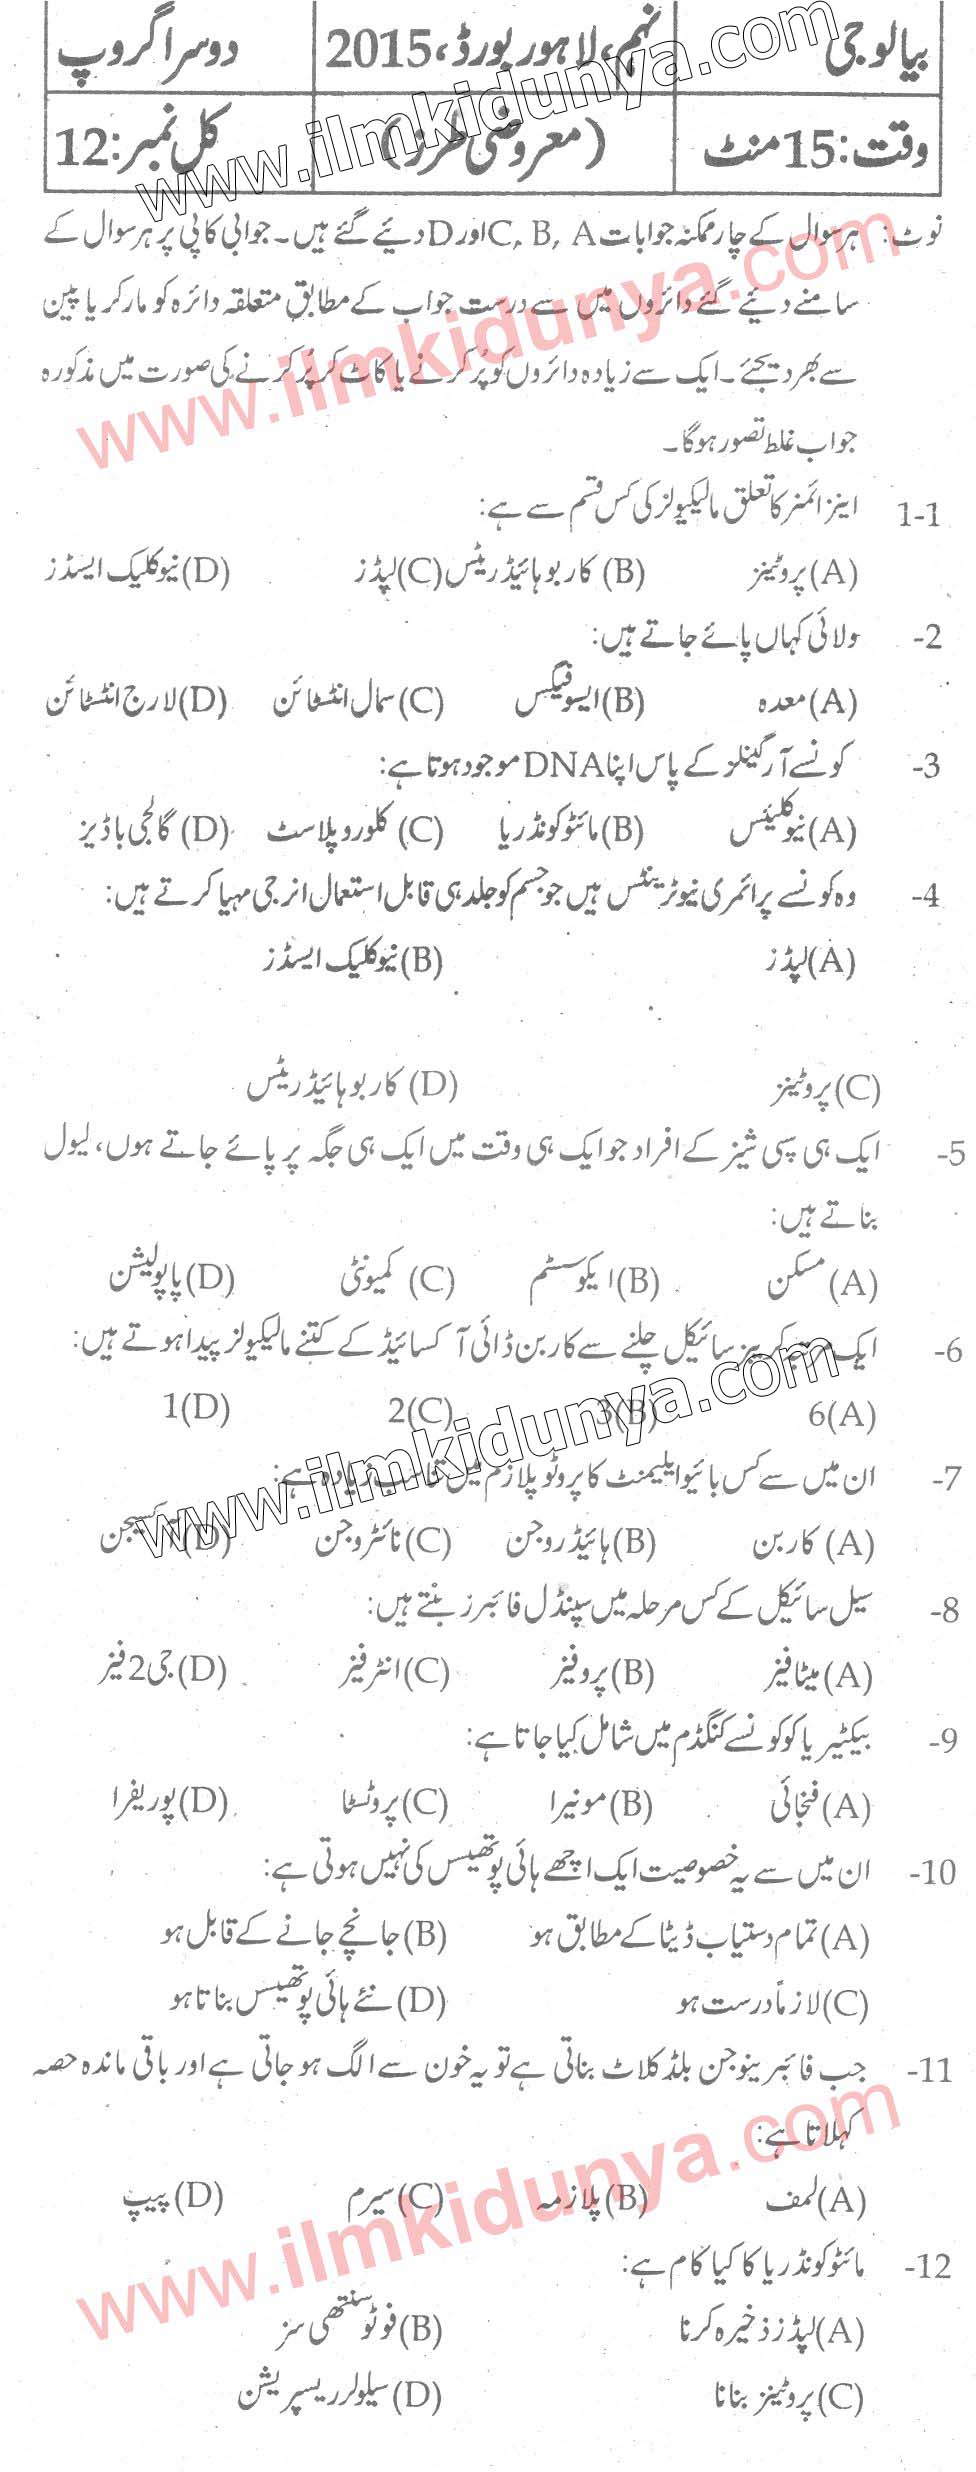 بیالوجی نہم، لاہور بورڈ، 2015 دوسرا گروپ
وقت: 15 منٹ (معروضی طرز) کل نمبر: 12
نوٹ: ہر سوال کے چار ممکنہ جوابات C, B, A اور D دیئے گئے ہیں۔ جوابی کاپی پر ہر سوال کے
سامنے دیئے گئے دائروں میں سے درست جواب کے مطابق متعلقہ دائرہ کو مارکر یا پین
سے بھر دیجئے۔ ایک سے زیادہ دائروں کو پُر کرنے یا کاٹ کر پُر کرنے کی صورت میں مذکورہ
جواب غلط تصور ہوگا۔
1-1 اینزائمز کا تعلق مالیکیولز کی کس قسم سے ہے:
(A) پروٹینز (B) کاربوہائیڈریٹس (C) لپڈز (D) نیوکلیک ایسڈز
2- ولائی کہاں پائے جاتے ہیں:
(A) معدہ (B) ایسوفیگس (C) سمال انٹسٹائن (D) لارج انٹسٹائن
3- کونسے آرگینلز کے پاس اپنا DNA موجود ہوتا ہے:
(A) نیوکلیئس (B) مائٹوکونڈریا (C) کلوروپلاسٹ (D) گالجی باڈیز
4- وہ کونسے پرائمری نیوٹرینٹس ہیں جو جسم کو جلد ہی قابل استعمال انرجی مہیا کرتے ہیں:
(A) لپڈز (B) نیوکلیک ایسڈز
(C) پروٹینز (D) کاربوہائیڈریٹس
5- ایک ہی سپی شیز کے افراد جو ایک ہی وقت میں ایک ہی جگہ پر پائے جاتے ہوں، لیول
بناتے ہیں:
(A) مسکن (B) ایکوسسٹم (C) کمیونٹی (D) پاپولیشن
6- ایک کربز سائیکل چلنے سے کاربن ڈائی آکسائیڈ کے کتنے مالیکیولز پیدا ہوتے ہیں:
(A) 6 (B) 3 (C) 2 (D) 1
7- ان میں سے کس بائیو ایلیمنٹ کا پروٹوپلازم میں تناسب زیادہ ہے:
(A) کاربن (B) ہائیڈروجن (C) نائٹروجن (D) آکسیجن
8- سیل سائیکل کے کس مرحلہ میں سپنڈل فائبرز بنتے ہیں:
(A) میٹافیز (B) پروفیز (C) انٹرفیز (D) جی 2 فیز
9- بیکٹیریا کو کونسے کنگڈم میں شامل کیا جاتا ہے:
(A) فنجائی (B) مونیرا (C) پروٹسٹا (D) پوریفرا
10- ان میں سے یہ خصوصیت ایک اچھے ہائی پوتھیسس کی نہیں ہوتی ہے:
(A) تمام دستیاب ڈیٹا کے مطابق ہو (B) جانچے جانے کے قابل ہو
(C) لازماً درست ہو (D) نئے ہائی پوتھیسس بناتا ہو
11- جب فائبرینوجن بلڈ کلاٹ بناتی ہے تو یہ خون سے الگ ہو جاتی ہے اور باقی ماندہ حصہ
کہلاتا ہے:
(A) لمف (B) پلازمہ (C) سیرم (D) پیپ
12- مائٹوکونڈریا کا کیا کام ہے:
(A) لپڈز ذخیرہ کرنا (B) فوٹوسنتھی سز
(C) پروٹینز بنانا (D) سیلولر ریسپریشن
www.ilmkidunya.com
www.ilmkidunya.com
www.ilmkidunya.com
www.ilmkidunya.com